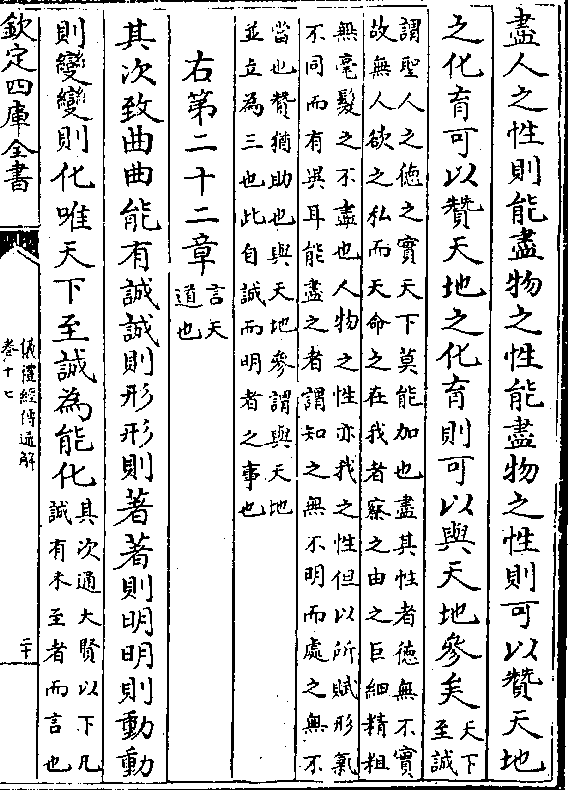 盡人之性則能盡物之性能盡物之性則可以贊天地
之化育可以贊天地之化育則可以與天地參矣
天下
至誠
謂聖人之德之實天下莫能加也盡其性者德無不實
故無人欲之私而天命之在我者察之由之巨細精粗
無毫髮之不盡也人物之性亦我之性但以所賦形氣
不同而有異耳能盡之者謂知之無不明而處之無不
當也贊猶助也與天地參謂與天地
並立為三也此自誠而明者之事也
右第二十二章
言天
道也
其次致曲曲能有誠誠則形形則著著則明明則動動
則變變則化唯天下至誠為能化
其次通大賢以下凡
誠有未至者而言也
欽定四庫全書
儀禮經傳通解
卷十七
二十